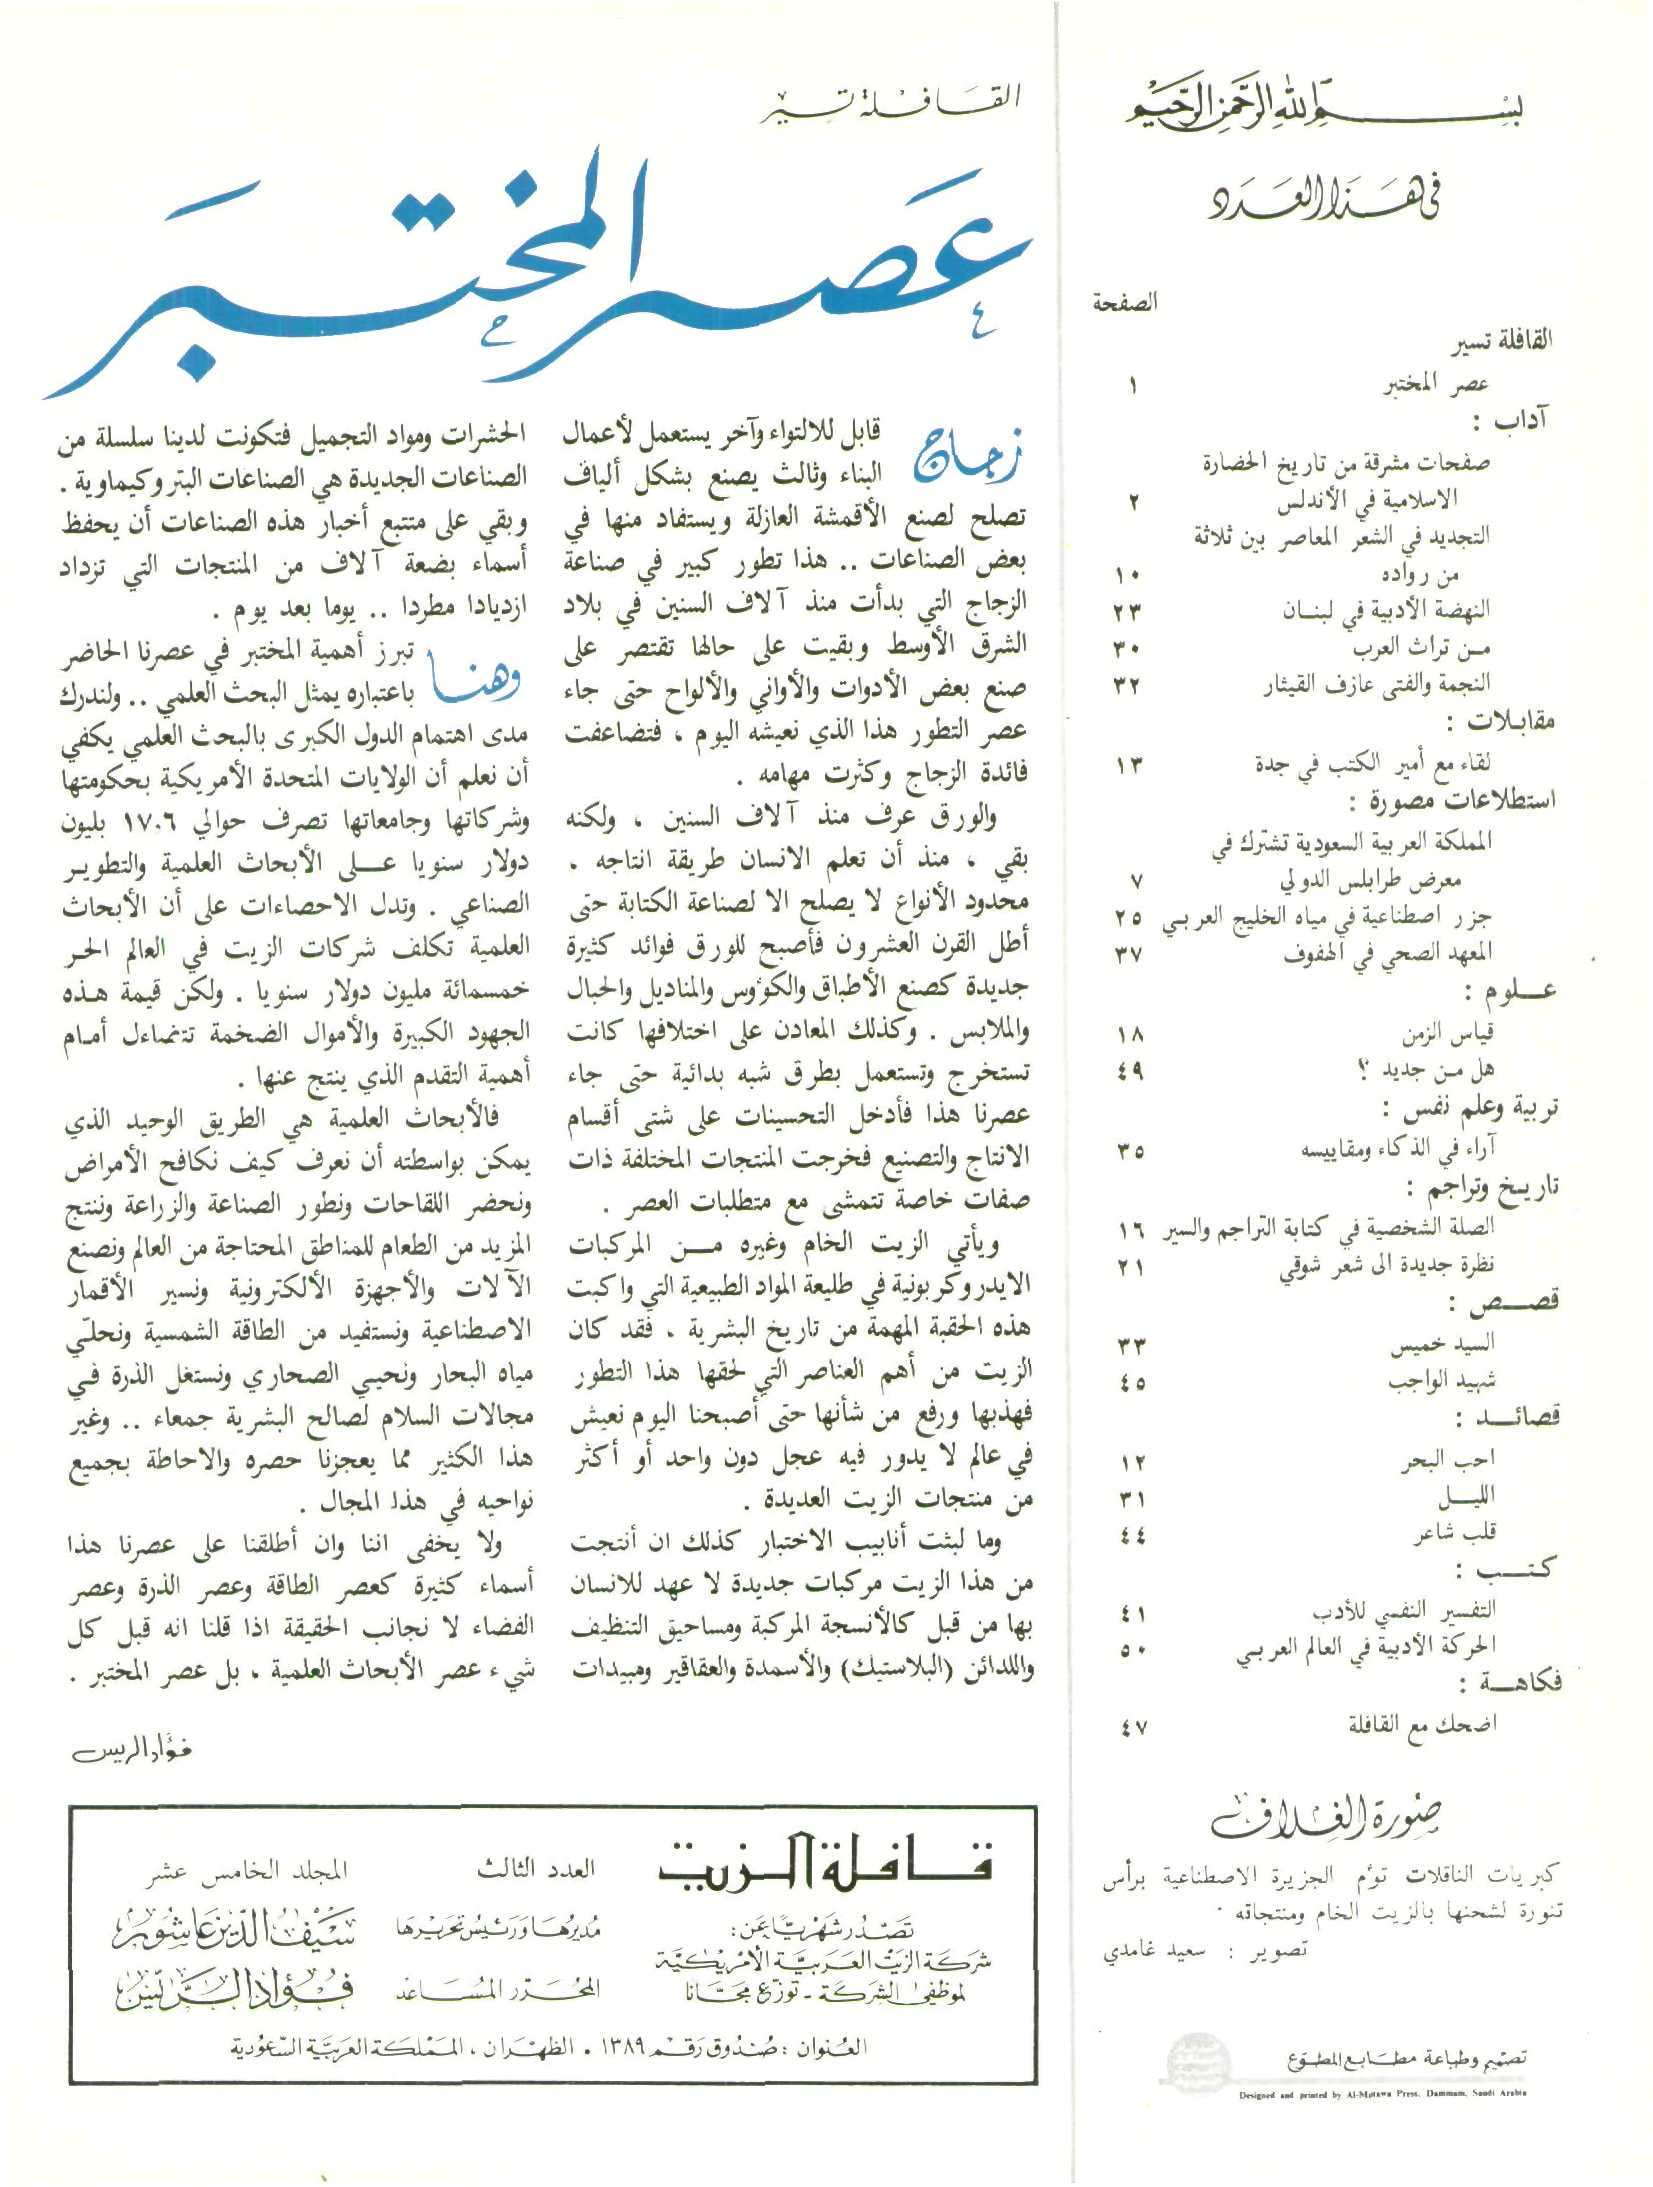 بسم الله الرحمن الرحيم
في هذا العدد
الصفحة
القافلة تسير
عصر المختبر ١
آداب :
صفحات مشرقة من تاريخ الحضارة
الاسلامية في الأندلس ٢
التجديد في الشعر المعاصر بين ثلاثة
من رواده ١٠
النهضة الأدبية في لبنان ٢٣
من تراث العرب ٣٠
النجمة والفتى عازف القيثار ٣٢
مقابلات :
لقاء مع أمير الكتب في جدة ١٣
استطلاعات مصورة :
المملكة العربية السعودية تشترك في
معرض طرابلس الدولي ٧
جزر اصطناعية في مياه الخليج العربي ٢٥
المعهد الصحي في الهفوف ٣٧
علوم :
قياس الزمن ١٨
هل من جديد ؟ ٤٩
تربية وعلم نفس :
آراء في الذكاء ومقاييسه ٣٥
تاريخ وتراجم :
الصلة الشخصية في كتابة التراجم والسير ١٦
نظرة جديدة الى شعر شوقي ٢١
قصص :
السيد خميس ٣٣
شهيد الواجب ٤٥
قصائد :
احب البحر ١٢
الليل ٣١
قلب شاعر ٤٤
كتب :
التفسير النفسي للأدب ٤١
الحركة الأدبية في العالم العربي ٥٠
فكاهة :
اضحك مع القافلة ٤٧
صورة الغلاف
كبريات الناقلات تؤم الجزيرة الاصطناعية برأس
تنورة لشحنها بالزيت الخام ومنتجاته .
تصوير : سعيد غامدي
تصميم وطباعة مطابع المطوع
Designed and printed by Al-Mutawa Press, Dammam, Saudi Arabia
القافلة تسير
عصر المختبر
زجاج قابل للالتواء وآخر يستعمل لأعمال
البناء وثالث يصنع بشكل ألياف
تصلح لصنع الأقمشة العازلة ويستفاد منها في
بعض الصناعات .. هذا تطور كبير في صناعة
الزجاج التي بدأت منذ آلاف السنين في بلاد
الشرق الأوسط وبقيت على حالها تقتصر على
صنع بعض الأدوات والأواني والألواح حتى جاء
عصر التطور هذا الذي نعيشه اليوم ، فتضاعفت
فائدة الزجاج وكثرت مهامه .
والورق عرف منذ آلاف السنين ، ولكنه
بقي ، منذ أن تعلم الانسان طريقة انتاجه .
محدود الأنواع لا يصلح الا لصناعة الكتابة حتى
أطل القرن العشرون فأصبح للورق فوائد كثيرة
جديدة كصنع الأطباق والكؤوس والمناديل والحبال
والملابس . وكذلك المعادن على اختلافها كانت
تستخرج وتستعمل بطرق شبه بدائية حتى جاء
عصرنا هذا فأدخل التحسينات على شتى أقسام
الانتاج والتصنيع فخرجت المنتجات المختلفة ذات
صفات خاصة تتمشى مع متطلبات العصر .
ويأتي الزيت الخام وغيره من المركبات
الايدروكربونية في طليعة المواد الطبيعية التي واكبت
هذه الحقبة المهمة من تاريخ البشرية . فقد كان
الزيت من أهم العناصر التي لحقها هذا التطور
فهذبها ورفع من شأنها حتى أصبحنا اليوم نعيش
في عالم لا يدور فيه عجل دون واحد أو أكثر
من منتجات الزيت العديدة .
وما لبثت أنابيب الاختبار كذلك ان أنتجت
من هذا الزيت مركبات جديدة لا عهد للانسان
بها من قبل كالأنسجة المركبة ومساحيق التنظيف
واللدائن (البلاستيك) والأسمدة والعقاقير ومبيدات
الحشرات ومواد التجميل فتكونت لدينا سلسلة من
الصناعات الجديدة هي الصناعات البتروكيماوية .
وبقي على متتبع أخبار هذه الصناعات أن يحفظ
أسماء بضعة آلاف من المنتجات التي تزداد
ازديادا مطردا .. يوما بعد يوم .
وهنا تبرز أهمية المختبر في عصرنا الحاضر
باعتباره يمثل البحث العلمي .. ولندرك
مدى اهتمام الدول الكبرى بالبحث العلمي يكفي
أن نعلم أن الولايات المتحدة الأمريكية بحكومتها
وشركاتها وجامعاتها تصرف حوالي ١٧،٦ بليون
دولار سنويا على الأبحاث العلمية والتطوير
الصناعي . وتدل الاحصاءات على أن الأبحاث
العلمية تكلف شركات الزيت في العالم الحر
خمسمائة مليون دولار سنويا . ولكن قيمة هذه
الجهود الكبيرة والأموال الضخمة تتضاءل أمام
أهمية التقدم الذي ينتج عنها .
فالأبحاث العلمية هي الطريق الوحيد الذي
يمكن بواسطته أن نعرف كيف نكافح الأمراض
ونحضر اللقاحات ونطور الصناعة والزراعة وننتج
المزيد من الطعام للمناطق المحتاجة من العالم ونصنع
الآلات والأجهزة الألكترونية ونسير الأقمار
الاصطناعية ونستفيد من الطاقة الشمسية ونحلّي
مياه البحار ونحيي الصحاري ونستغل الذرة في
مجالات السلام لصالح البشرية جمعاء .. وغير
هذا الكثير مما يعجزنا حصره والاحاطة بجميع
نواحيه في هذا المجال .
ولا يخفى اننا وان أطلقنا على عصرنا هذا
أسماء كثيرة كعصر الطاقة وعصر الذرة وعصر
الفضاء لا نجانب الحقيقة اذا قلنا انه قبل كل
شيء عصر الأبحاث العلمية ، بل عصر المختبر .
فؤاد الريس
قافلة الزيت
العدد الثالث المجلد الخامس عشر
تصدر شهريًّا عن:
شركة الزيت العربية الأمريكية
لموظفي الشركة - توزع مجانا
مديرها ورئيس تحريرها سيف الدين عاشور
المحرر المساعد فؤاد الريّس
العنوان : صندوق رقم ١٣٨٩ . الظهران ، المملكة العربية السعودية